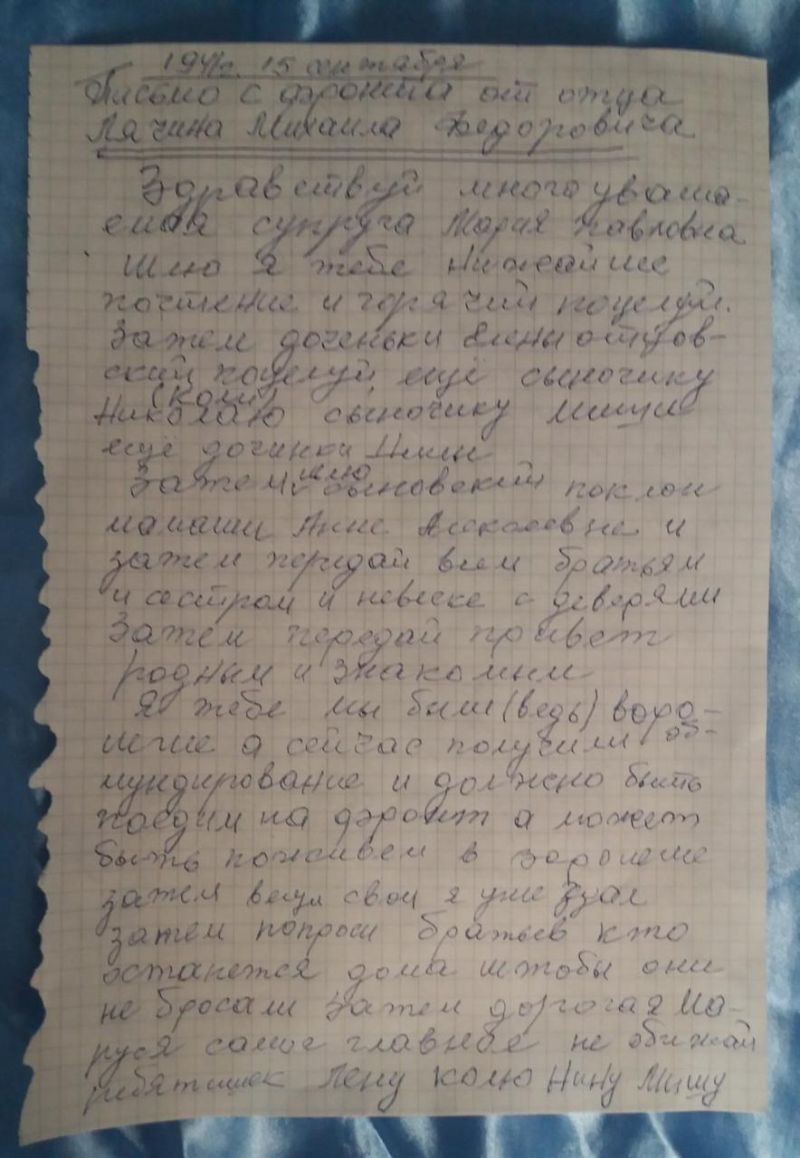 1941г. 15 сентября
Письмо с фронта от отца
Лячина Михаила Федоровича
Здравствуй многоуважа-
емая супруга Мария Павловна
Шлю я тебе нижайшие
почтение и горячий поцелуй.
Затем доченьки Елены отцов-
ский поцелуй ещё сыночику
(Коли)
Николаю сыночику Мише
ещё дочинки Нины
шлю
Затем сыновский поклон
мамаши Анне Алексеевне и
затем передай всем братьям
и сестром и невеске с деверями
Затем передай привет
родным и знакомым
Я тебе мы были (ведь) воро-
неже а сейчас получили об-
мундирование и должно быть
поедим на фронт а может
быть поживем в Воронеже
затем вещи свои я уже сдал
затем попроси братьев кто
останется дома штобы они
не бросали Затем дорогая Ма-
руся самое главное не обижай
ребятишек Лену Колю Нину Мишу